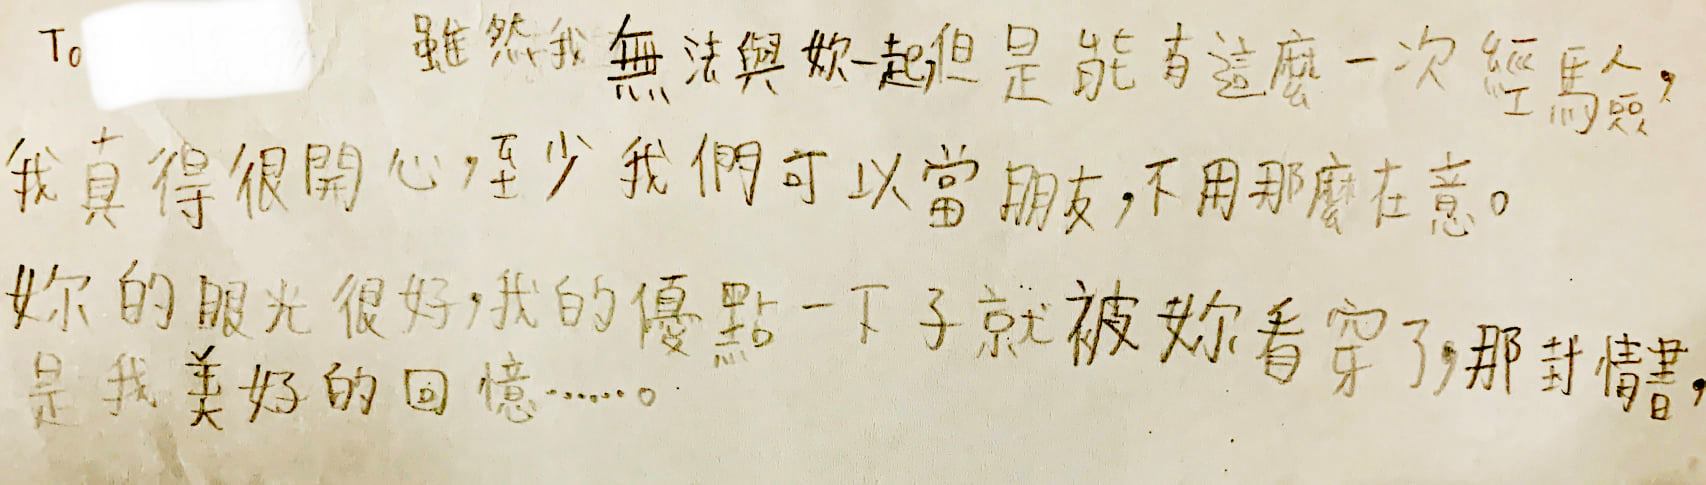 To 雖然我無法與妳一起但是能有這麼一次經驗，
我真得很開心，至少我們可以當朋友，不用那麼在意。
妳的眼光很好，我的優點一下子就被妳看穿了，那封情書，
是我美好的回憶……。